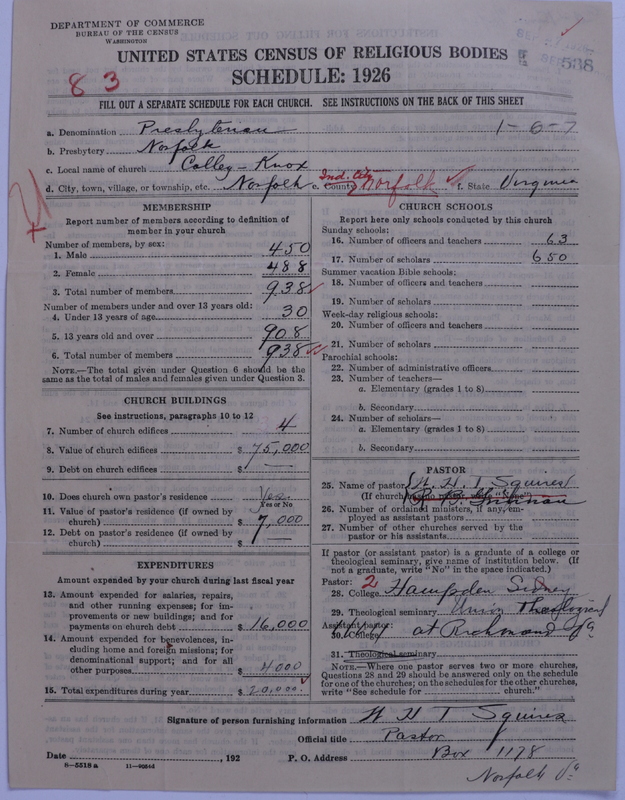 DEPARTMENT OF COMMERCE
BUREAU OF THE CENSUS
WASHINGTON
538
UNITED STATES CENSUS OF RELIGIOUS BODIES
83
SCHEDULE: 1926
FILL OUT A SEPARATE SCHEDULE FOR EACH CHURCH. SEE INSTRUCTIONS ON THE BACK OF THIS SHEET
a. Denomination Presbyterian 1-6-7
b. Presbytery Norfolk
c. Local name of church Colley-Knox
d. City, town, village, or township, etc. Norfolk e. County Ind. City Norfolk f. State Virginia
MEMBERSHIP
Report number of members according to definition of
member in your church
Number of members, by sex:
1. Male 450
2. Female 488
3. Total number of members 938
Number of members under and over 13 years old:
4. Under 13 years of age 30
5. 13 years old and over 908
6. Total number of members 938
NOTE.—The total given under Question 6 should be the
same as the total of males and females given under Question 3.
CHURCH BUILDINGS
See instructions, paragraphs 10 to 12
7. Number of church edifices 4
8. Value of church edifices $ 75,000
9. Debt on church edifices $ —
10. Does church own pastor's residence Yes
Yes or No
11. Value of pastor's residence (if owned by
church) $ 7,000
12. Debt on pastor's residence (if owned by
church) $ —
EXPENDITURES
Amount expended by your church during last fiscal year
13. Amount expended for salaries, repairs,
and other running expenses; for im-
provements or new buildings; and for
payments on church debt $ 16,000
14. Amount expended for benevolences, in-
cluding home and foreign missions; for
denominational support; and for all
other purposes $ 4000
15. Total expenditures during year $ 20,000.
CHURCH SCHOOLS
Report here only schools conducted by this church
Sunday schools:
16. Number of officers and teachers 63
17. Number of scholars 650
Summer vacation Bible schools:
18. Number of officers and teachers
19. Number of scholars
Week-day religious schools:
20. Number of officers and teachers
21. Number of scholars
Parochial schools:
22. Number of administrative officers
23. Number of teachers—
a. Elementary (grades 1 to 8)
b. Secondary
24. Number of scholars—
a. Elementary (grades 1 to 8)
b. Secondary
PASTOR
25. Name of pastor W. H. T. Squires
(If church has no pastor, write "None")
26. Number of ordained ministers, if any, em-
ployed as assistant pastors
27. Number of other churches served by the
pastor or his assistants
If pastor (or assistant pastor) is a graduate of a college or
theological seminary, give name of institution below. (If
not a graduate, write "No" in the space indicated.)
Pastor: 2
28. College Hampden Sidney
29. Theological seminary Union Theological
Assistant pastor:
30. College at Richmond Va
31. Theological seminary
NOTE.—Where one pastor serves two or more churches,
Questions 28 and 29 should be answered only on the schedule
for one of the churches; on the schedules for the other churches,
write "See schedule for church."
Signature of person furnishing information W H T Squires
Official title Pastor
Date , 192 P. O. Address Box 1178
8-5518 a
Norfolk Va